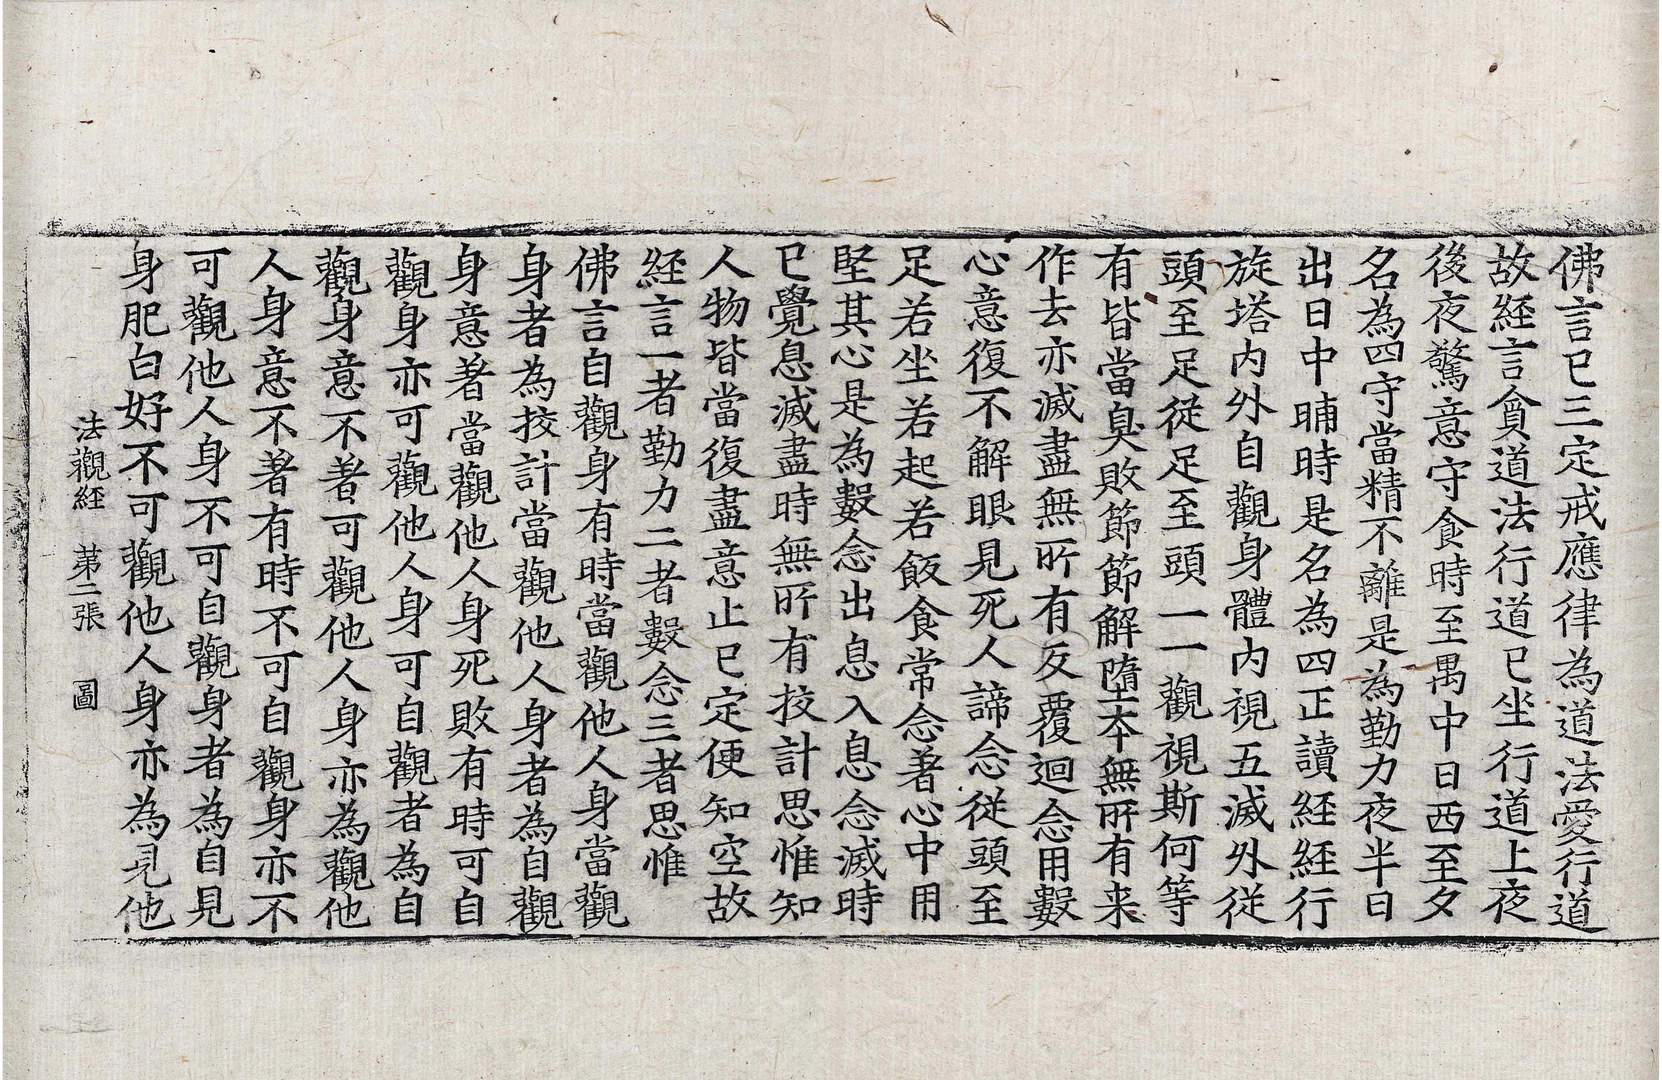 佛言已三定戒應律為道法愛行道
故経言貪道法行道已坐行道上夜
後夜驚意守食時至禺中日西至夕
名為四守當精不離是為勤力夜半日
出日中晡時是名為四正讀経経行
旋塔内外自觀身體内視五滅外従
頭至足従足至頭一一觀視斯何等
有皆當臭敗節節解墮本無所有来
作去亦滅盡無所有反覆迴念用數
心意復不解眼見死人諦念従頭至
足若坐若起若飯食常念著心中用
堅其心是為數念出息入息念滅時
已覺息滅盡時無所有挍計思惟知
人物皆當復盡意止已定便知空故
経言一者勤力二者數念三者思惟
佛言自觀身有時當觀他人身當觀
身者為挍計當觀他人身者為自觀
身意著當觀他人身死敗有時可自
觀身亦可觀他人身可自觀者為自
觀身意不著可觀他人身亦為觀他
人身意不著有時不可自觀身亦不
可觀他人身不可自觀身者為自見
身肥白好不可觀他人身亦為見他
法觀経　第二張　圖